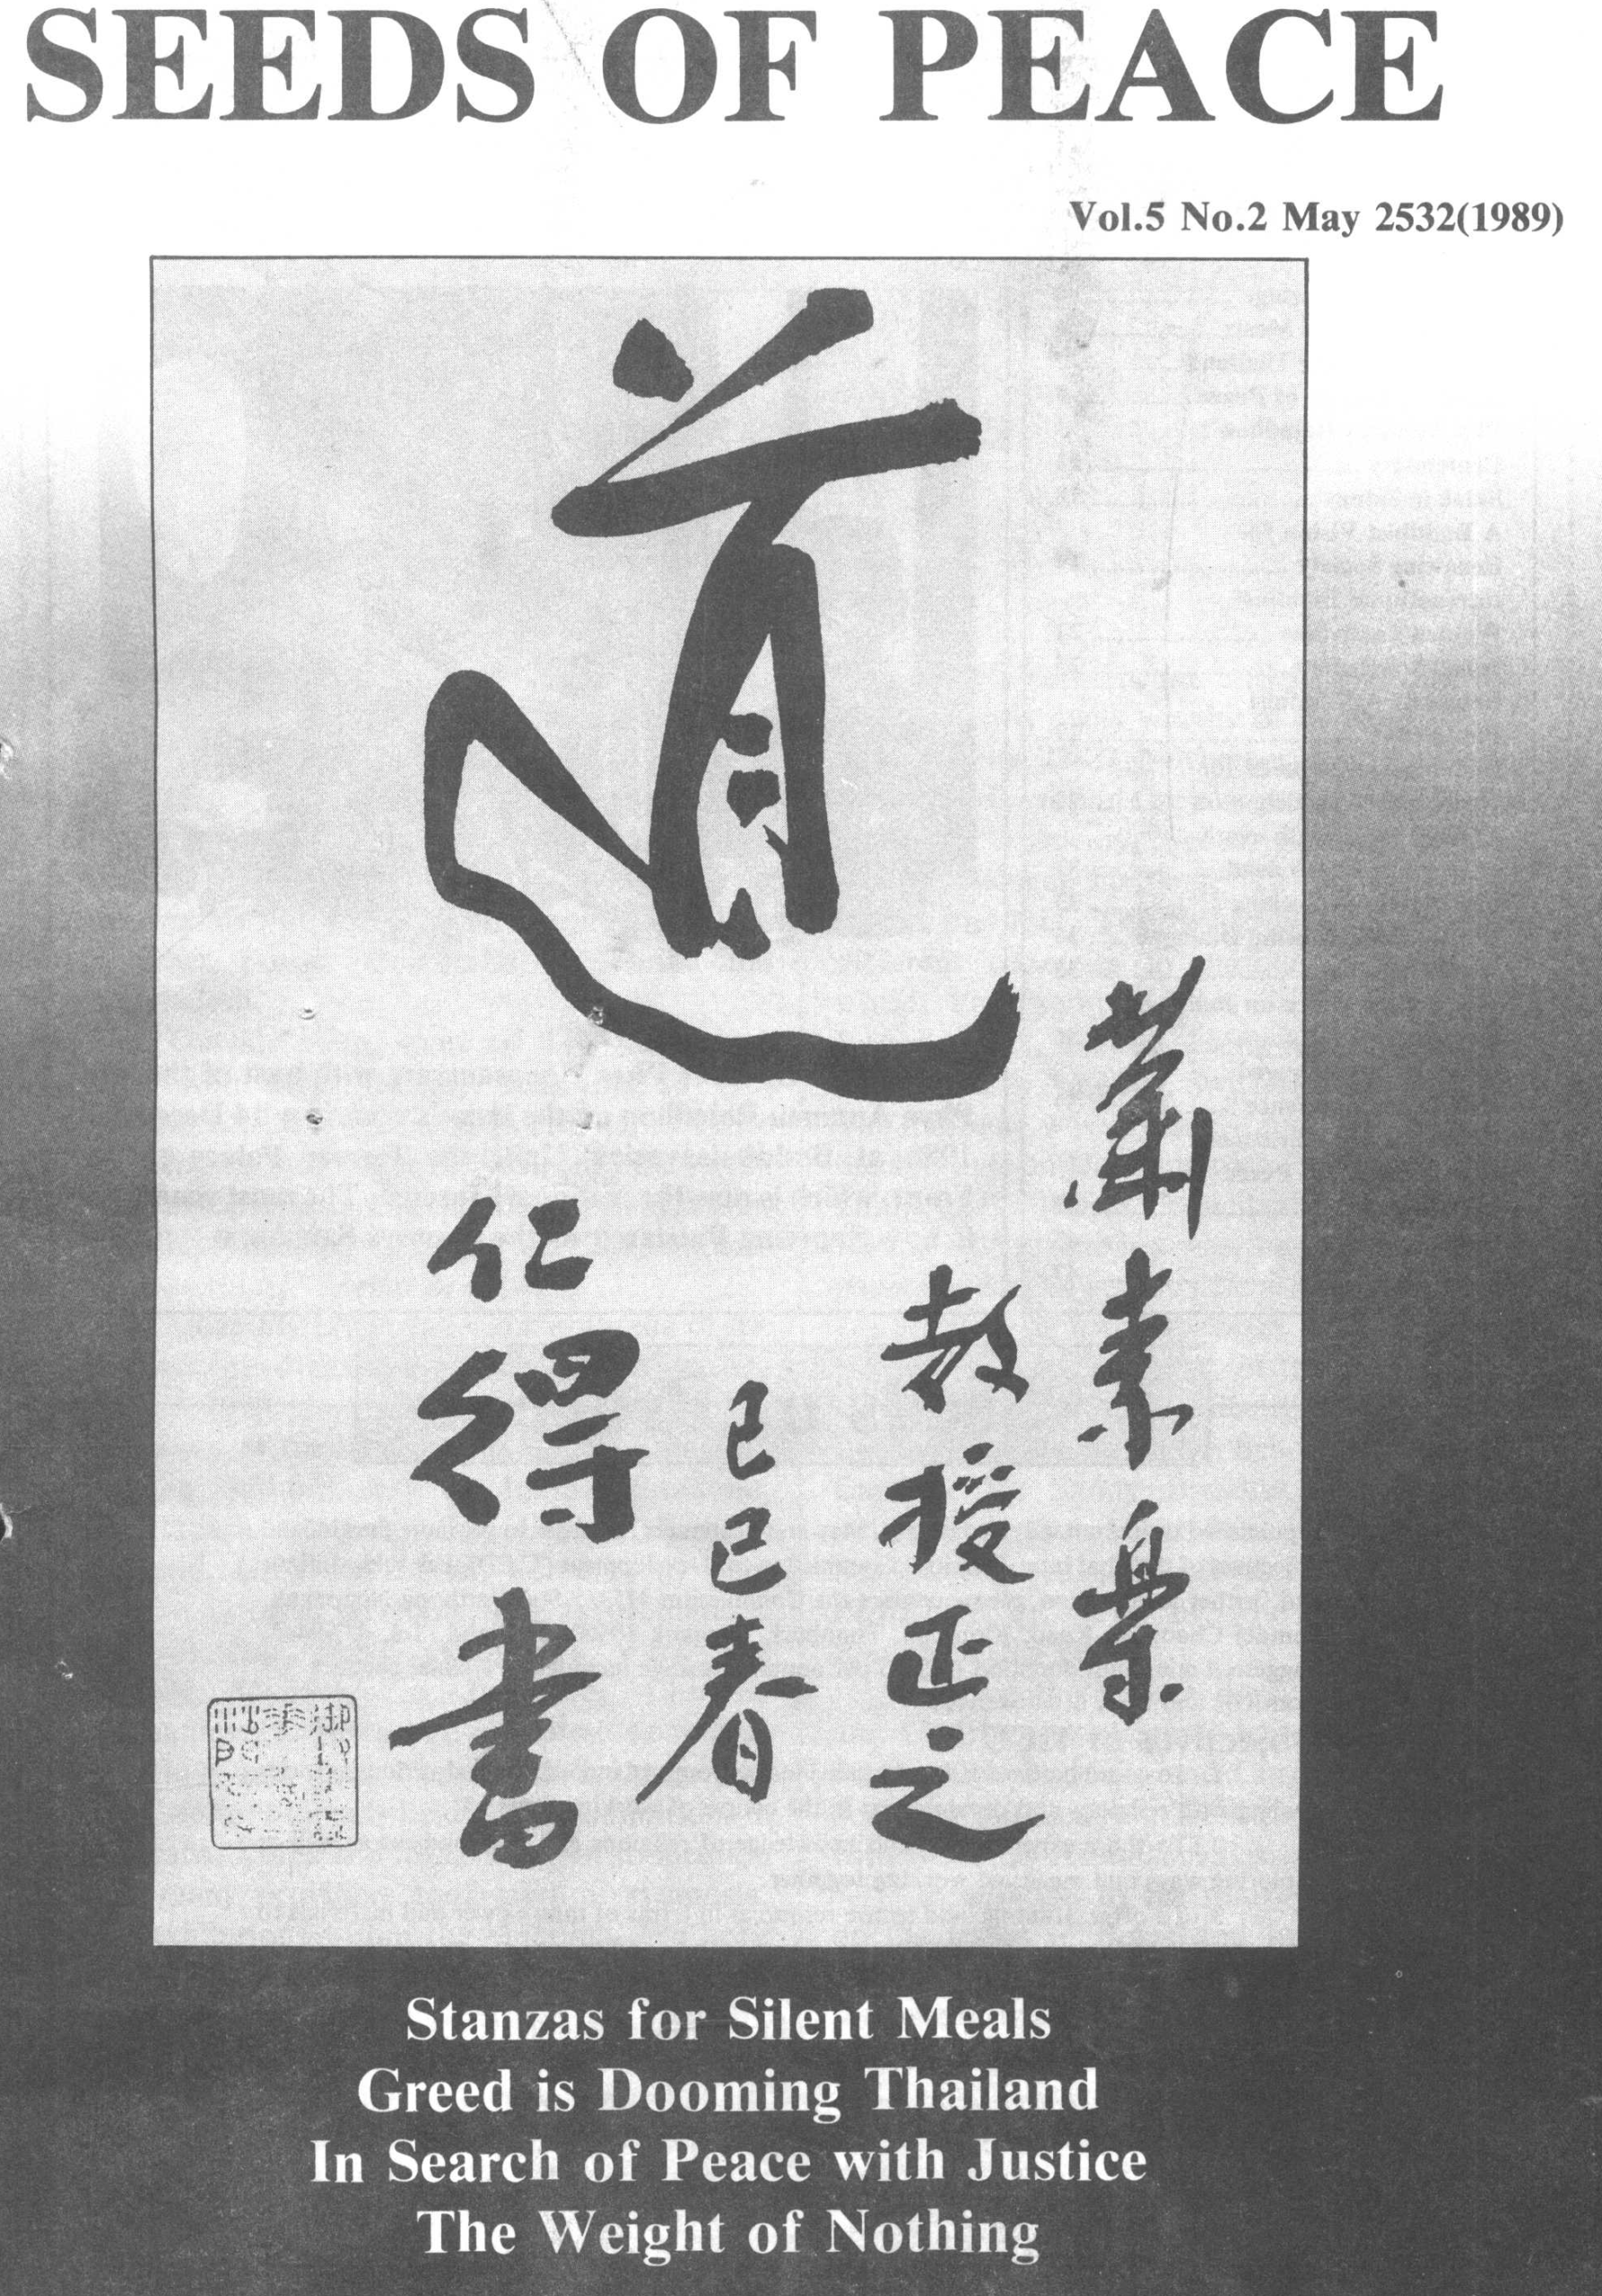 SEEDS OF PEACE
Vol.5 No.2 May 2532(1989)
道
蕭素樂
教授正之
己巳春
仁得書
Stanzas for Silent Meals
Greed is Dooming Thailand
In Search of Peace with Justice
The Weight of Nothing